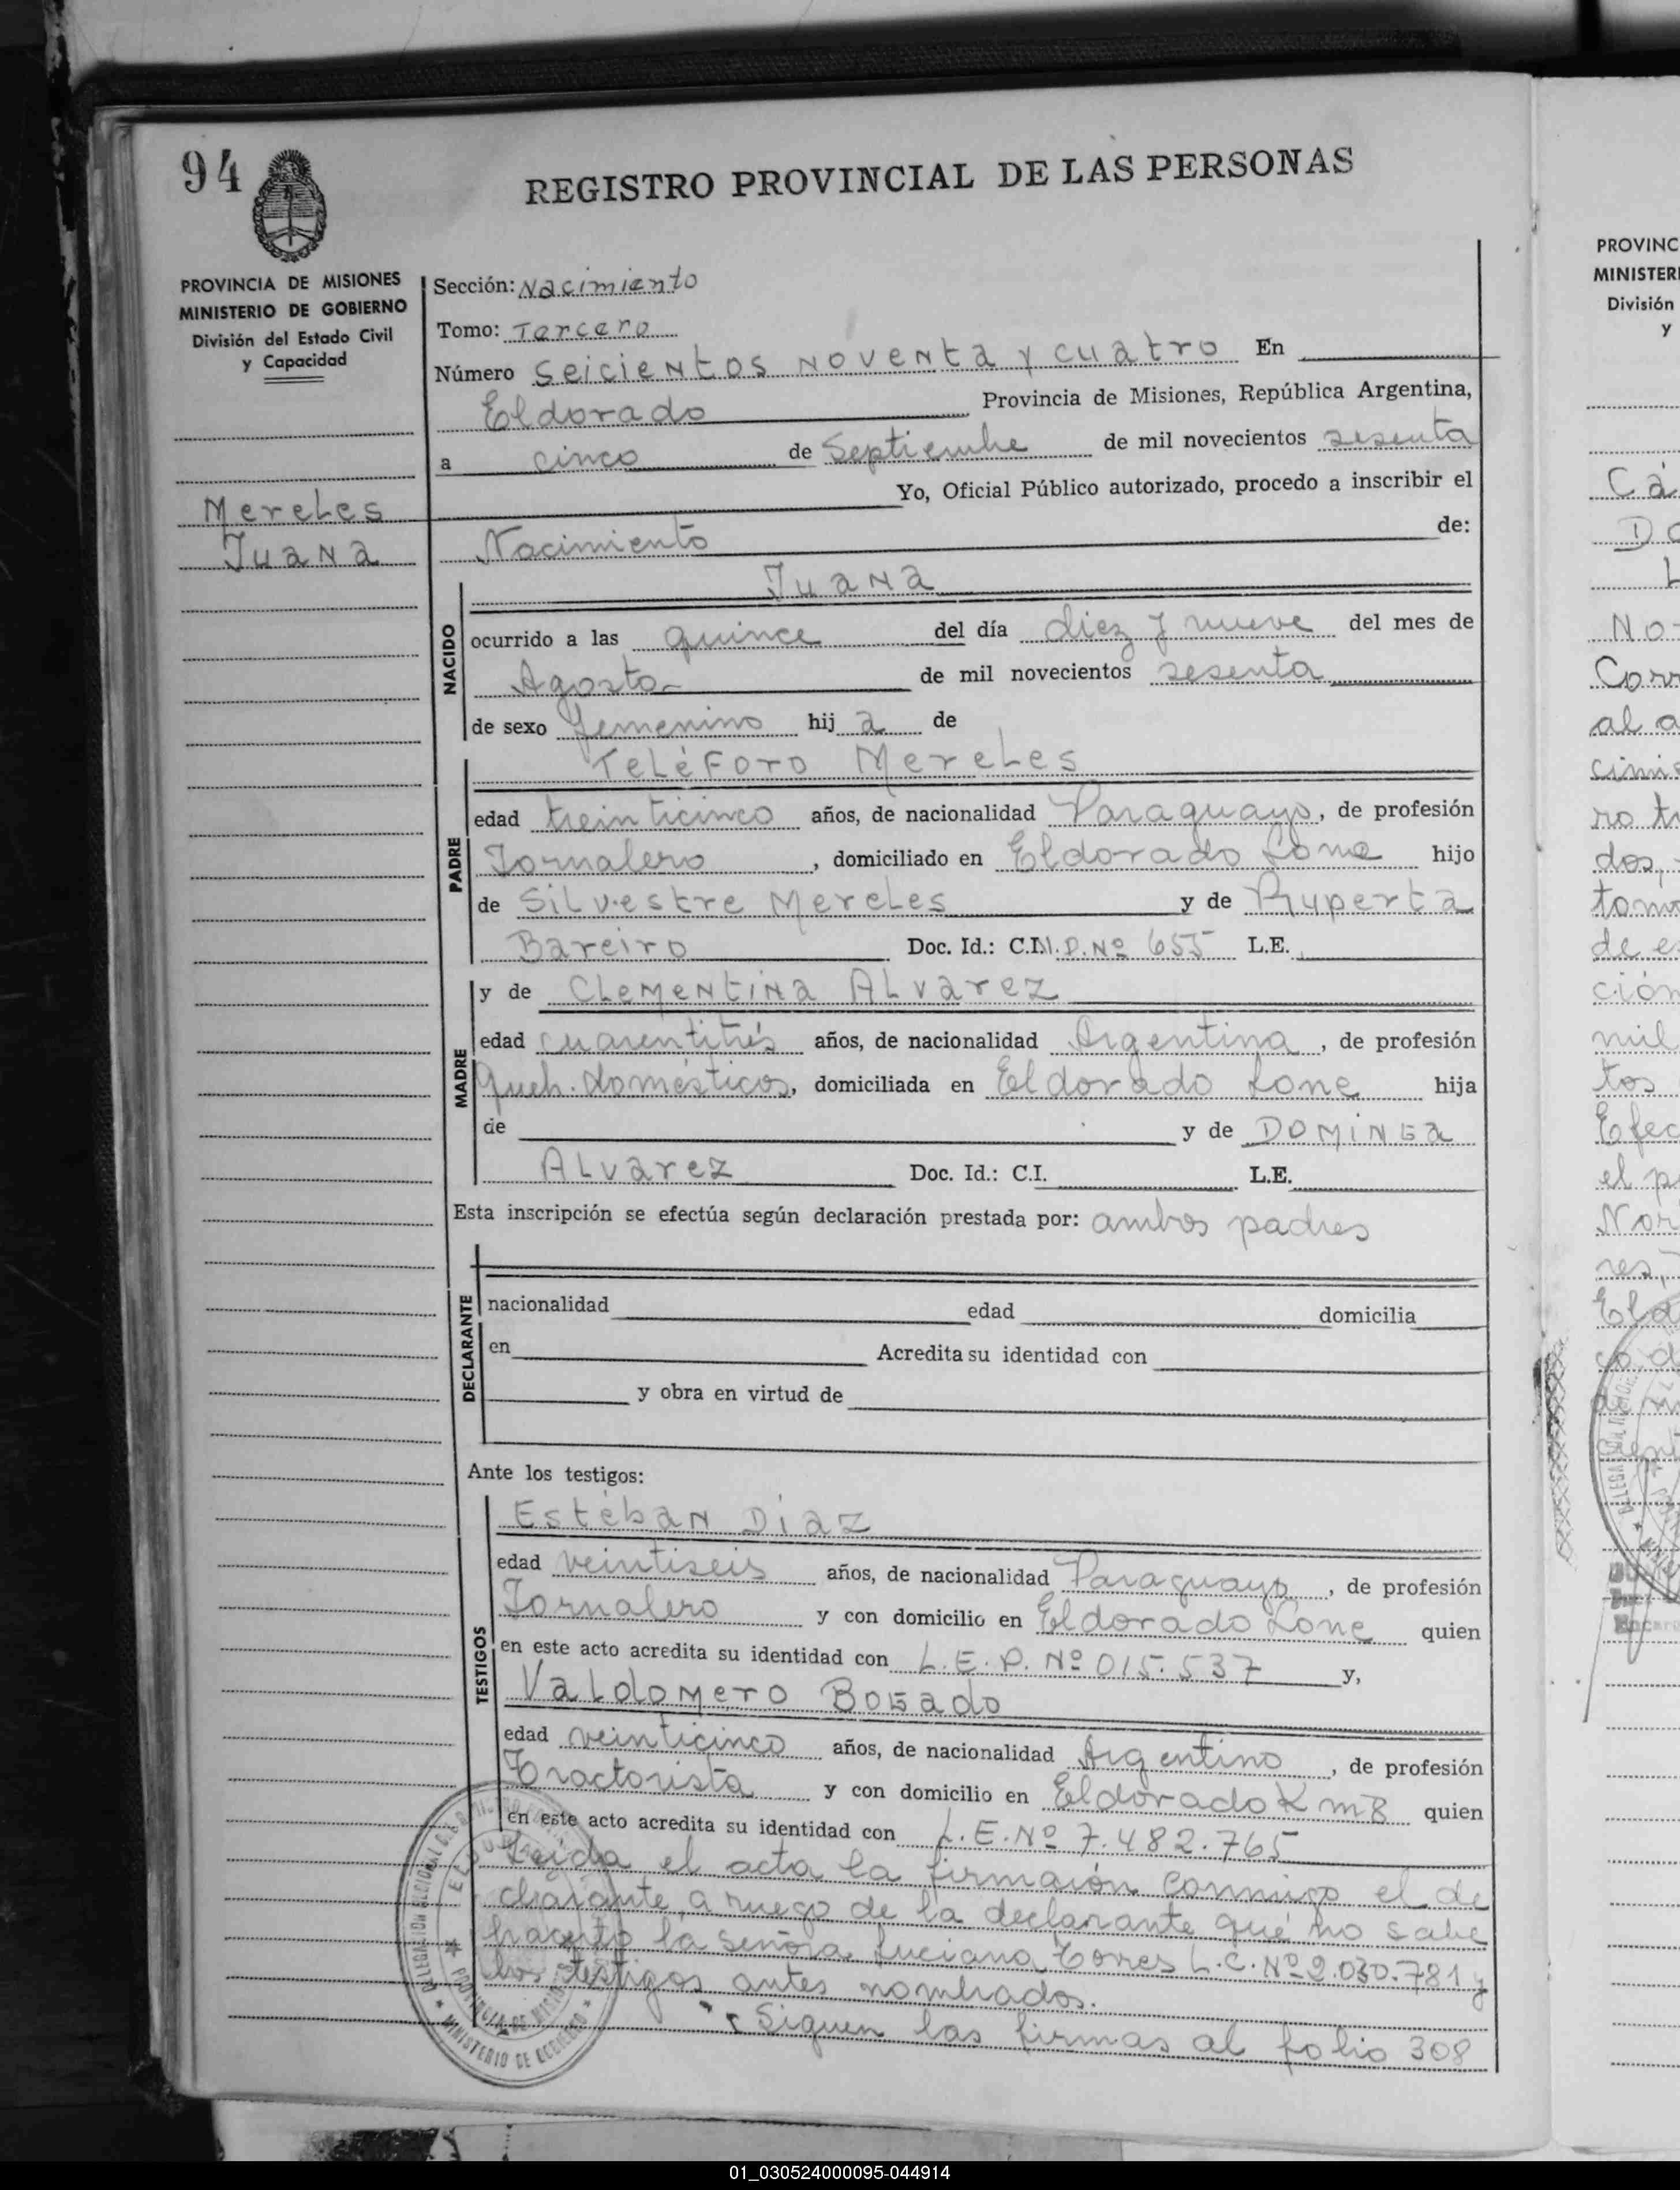 94
REGISTRO PROVINCIAL DE LAS PERSONAS
PROVINCIA DE MISIONES
MINISTERIO DE GOBIERNO
División del Estado Civil
y Capacidad
Mereles
Juana
Sección: Nacimiento
Tomo: Tercero
Número Seicientos noventa y cuatro En
Eldorado Provincia de Misiones, República Argentina,
a cinco de Septiembre de mil novecientos sesenta
Yo, Oficial Público autorizado, procedo a inscribir el
Nacimiento de:
NACIDO
Juana
ocurrido a las quince del día diez y nueve del mes de
Agosto de mil novecientos sesenta
de sexo femenino hij a de
PADRE
Teléforo Mereles
edad treinticinco años, de nacionalidad Paraguayo, de profesión
Jornalero, domiciliado en Eldorado Lone hijo
de Silvestre Mereles y de Ruperta
Bareiro Doc. Id.: C.I. N.P.Nº 655 L.E.
MADRE
y de Clementina Alvarez
edad cuarentitrés años, de nacionalidad Argentina, de profesión
Queh. domésticos, domiciliada en Eldorado Lone hija
de y de Dominga
Alvarez Doc. Id.: C.I. L.E.
Esta inscripción se efectúa según declaración prestada por: ambos padres
DECLARANTE
nacionalidad edad domicilia
en Acredita su identidad con
y obra en virtud de
Ante los testigos:
TESTIGOS
Estéban Díaz
edad veintiseis años, de nacionalidad Paraguayo, de profesión
Jornalero y con domicilio en Eldorado Lone quien
en este acto acredita su identidad con L.E.P. Nº 015.537 y,
Valdomero Bogado
edad veinticinco años, de nacionalidad Argentino, de profesión
Tractorista y con domicilio en Eldorado Km 8 quien
en este acto acredita su identidad con L.E.Nº 7.482.765
Leida el acta la firmaron conmigo el de
clarante, a ruego de la declarante que no sabe
hacerlo la señora Luciana Torres L.C.Nº 2.030.781 y
los testigos antes nombrados.
Siguen las firmas al folio 308
MINISTERIO DE GOBIERNO
PROVINC
MINISTERI
División
y
01_030524000095-044914